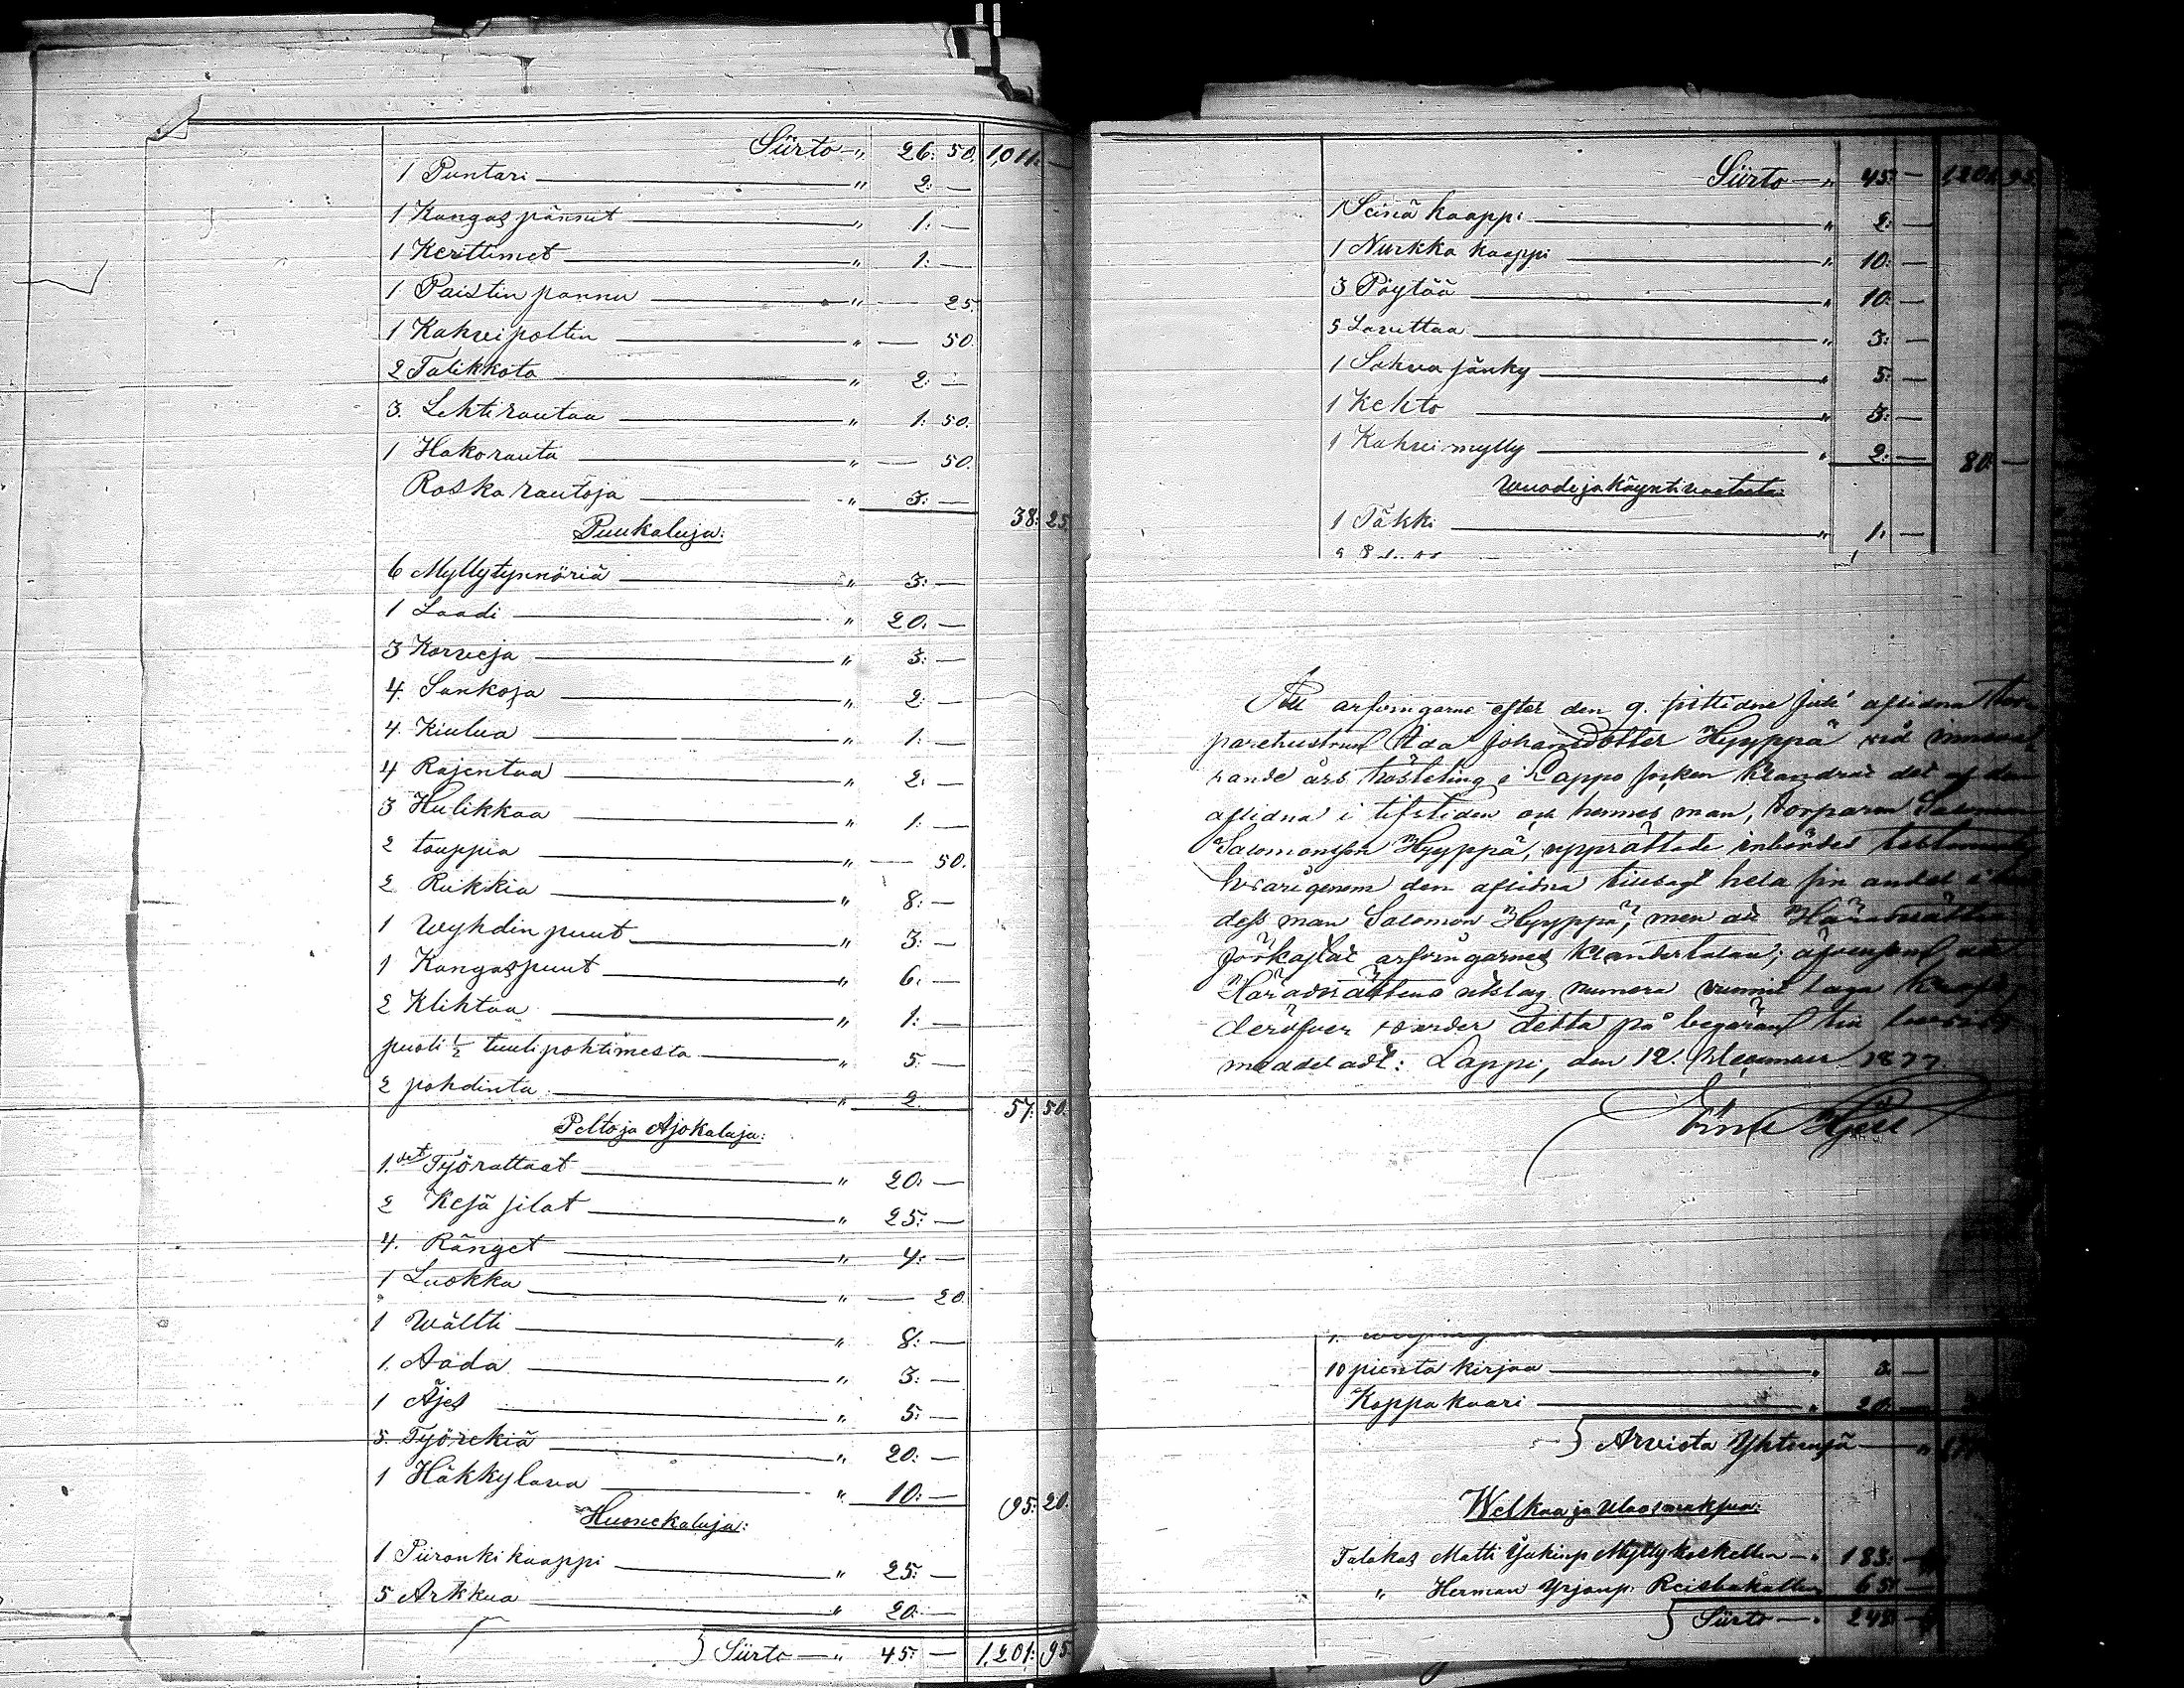 Siirto — " 26: 50. 1,011. —
1 Puntari — " 2: —
1 Kangas pännit — " 1: —
1 Kerittimet — " 1: —
1 Paistin pannu — " — 25.
1 Kahvei poltin — " — 50.
2 Talikkota — " 2: —
3. Lehti rautaa — " 1: 50.
1 Hakorauta — " — 50.
Roska rautoja — " 3: — 38: 25.
Puukaluja:
6 Myllytynnöriä — " 3: —
1 Laadi — " 20. —
3 Korveja — " 3: —
4. Sankoja — " 2: —
4. Kiulua — " 1: —
4 Rajentaa — " 2. —
3 Hulikkaa — " 1: —
2 touppia — " — 50.
2 Rukkia — " 8: —
1 Wyhdin puut — " 3: —
1 Kangaspuut — " 6. —
2 Klihtaa — " 1: —
puoli ½ tuulipohtimesta — " 5. —
2 pohdinta — " 2. 57: 50.
Pelto ja Ajokaluja:
1. set Työrattaat — " 20: —
2 Kesä silat — " 25: —
4. Ränget — " 4: —
1 Luokka — " — 20.
1 Wältti — " 8: —
1. Aada — " 3: —
1 Äjes — " 5: —
5. Työrekiä — " 20: —
1 Häkkylava — " 10: — 95: 20.
Huonekaluja:
1 Piironki kaappi — " 25: —
5 Arkkua — " 20: —
Siirto — " 45: — 1,201: 95.
Siirto — " 45: — 1,201. 95.
1 Seinä kaappi — " 2: —
1 Nurkka kaappi — " 10: —
3 Pöytää — " 10: —
5 Lavittaa — " 3: —
1 Sohva sänky — " 5: —
1 Kehto — " 3: —
1 Kahvei mylly — " 2: — 80: —
Wuode ja käynti vaatteita:
1 Täkki — " 1: —
arfvingarne efter den 9. sistidne Juli aflidna
Johansdotter Hyyppä vid
rande års hösteting i Lappo socken klandrat det af den
aflidna i lifstiden och hennes man, torparen
Salomonsson Hyyppä, upprättade inbördes
hvarigenom den aflidna hela sin andel
dess man Salomon Hyyppä, men att Häradsrätten
förkastat arfvingarnes klandertalan; äfvensom att
Häradsrättens utslag numera vunnit laga kraft,
deröfver varder detta på begäran
meddeladt: Lappi, den 12. 1877.
10 pientä kirjaa — " 3 —
Koppa kaari — " 20. —
Arviota Yhteensä — "
Welkaa ja Ulosmaksua:
Talokas Matti — " 183: —
" Herman Yrjönp. 65 —
Siirto — " 248 —